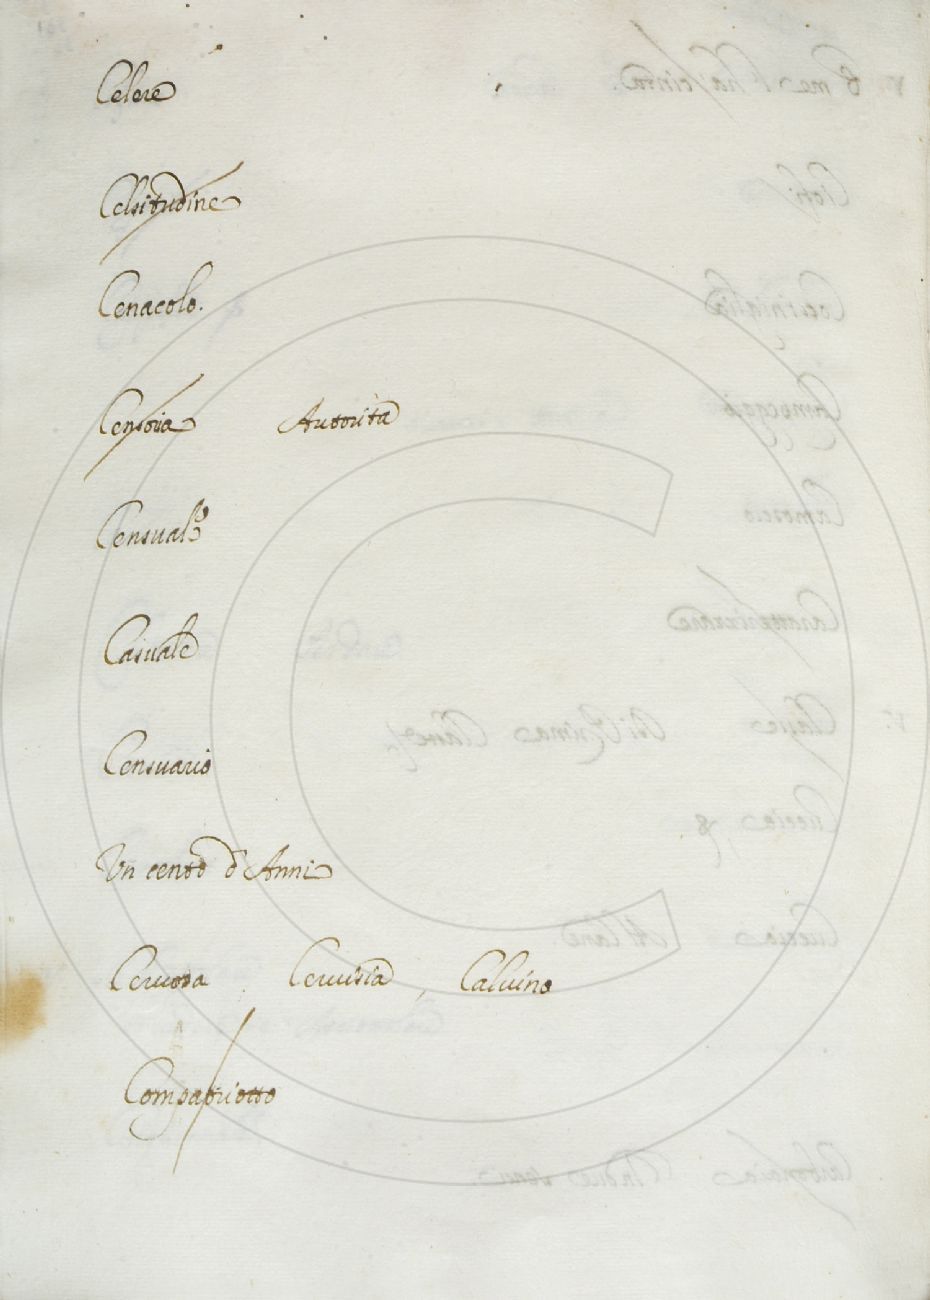 Celere
Celsitudine
Cenacolo.
Censoia Autorita
Censuale
Casuale
Censuario
Un cento d'Anni
Cervosa Cervisia, Calvino
Compatriotto